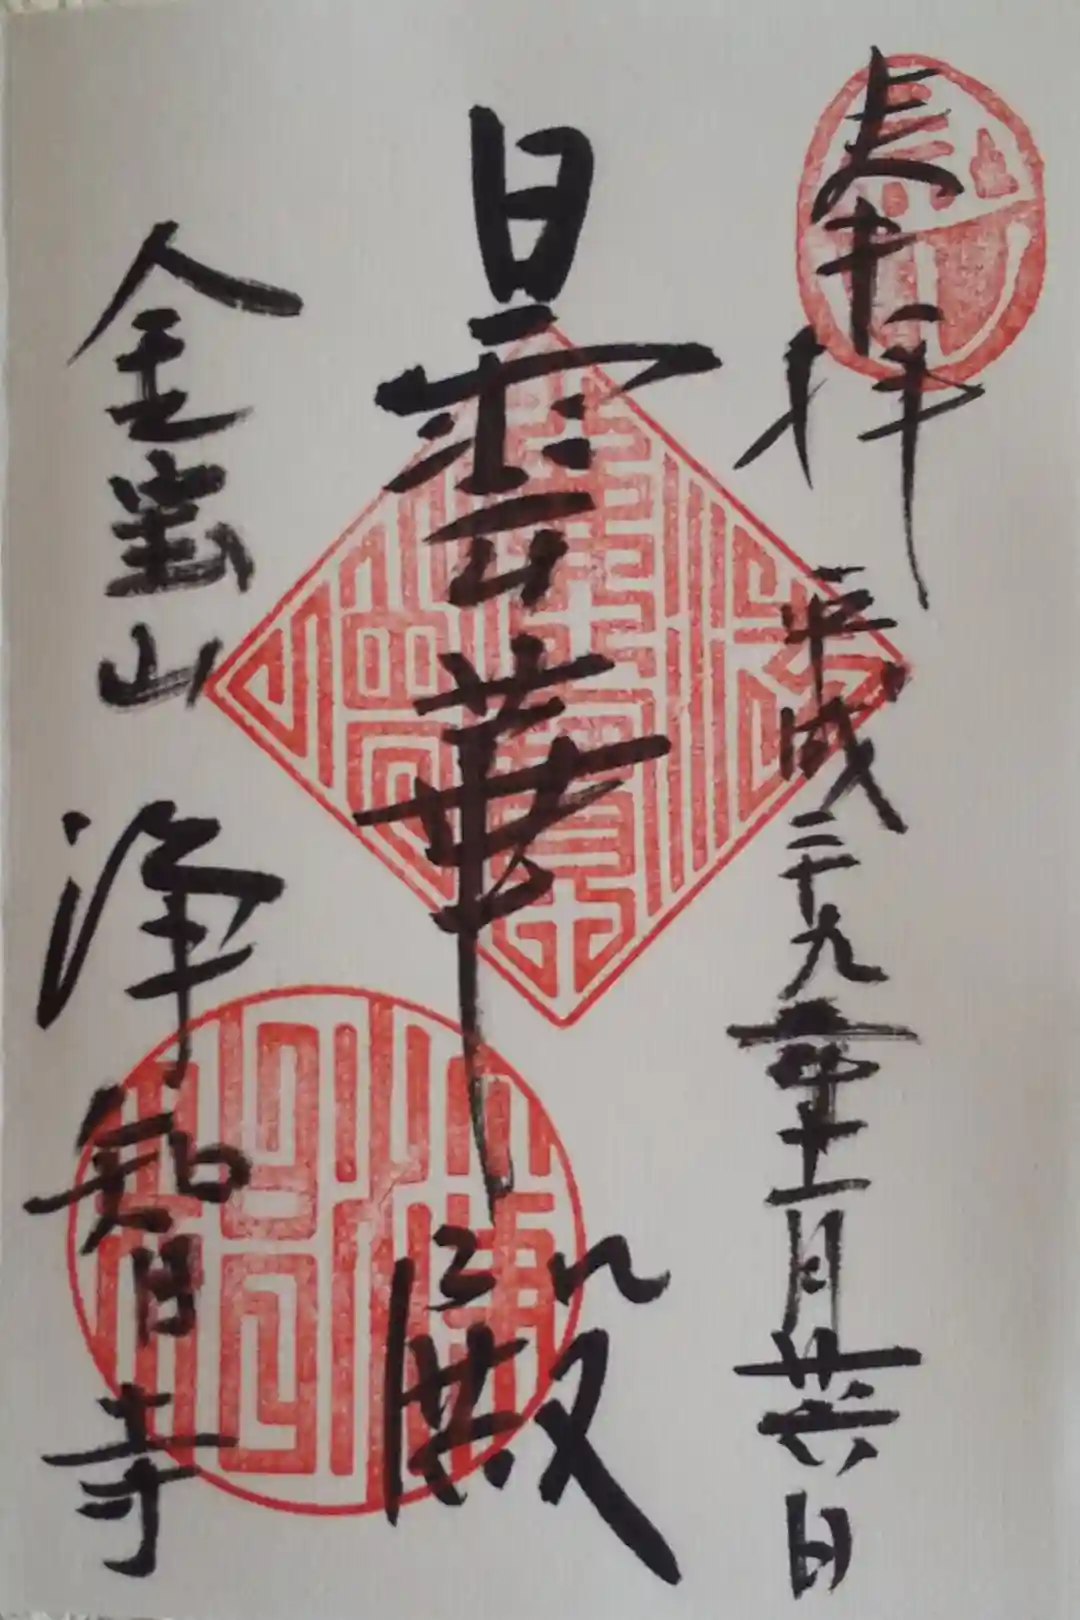 奉拝
平成二十九年十二月廿六日
曇華殿
金宝山
浄智寺